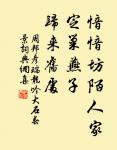 愔愔坊陌人家
定巢燕子
歸來舊處
周邦彥瑞龍吟大石春
景詞典網集